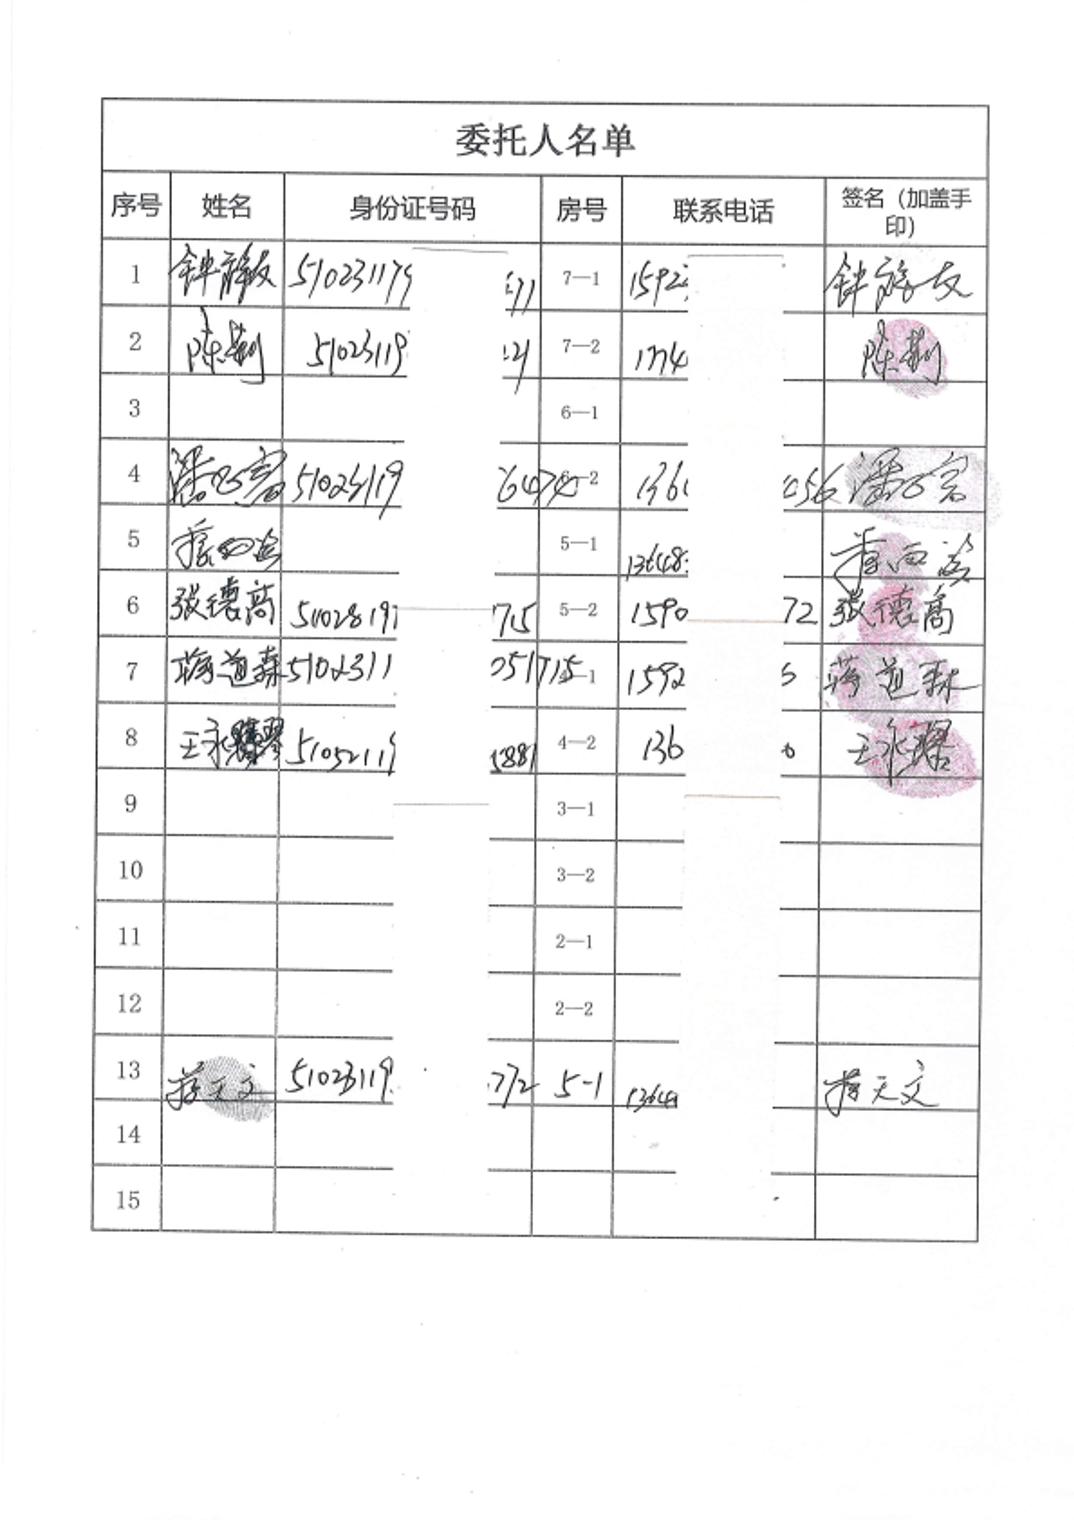 委托人名单
序号 姓名 身份证号码 房号 联系电话 签名（加盖手印）
1 510231179 7—1 1592 友
2 陈 51023119 21 7—2 1774 陈
3 6—1
4 潘 51023119 6474 6—2 136 056 潘
5 5—1 13648
6 张德高 51028197 715 5—2 1590 72 张德高
7 蒋道森 5102311 051715 4—1 1592 蒋道森
8 王永 51052119 1388 4—2 136 王永
9 3—1
10 3—2
11 2—1
12 2—2
13 蒋天文 51023119 772 5-1 1364 蒋天文
14
15